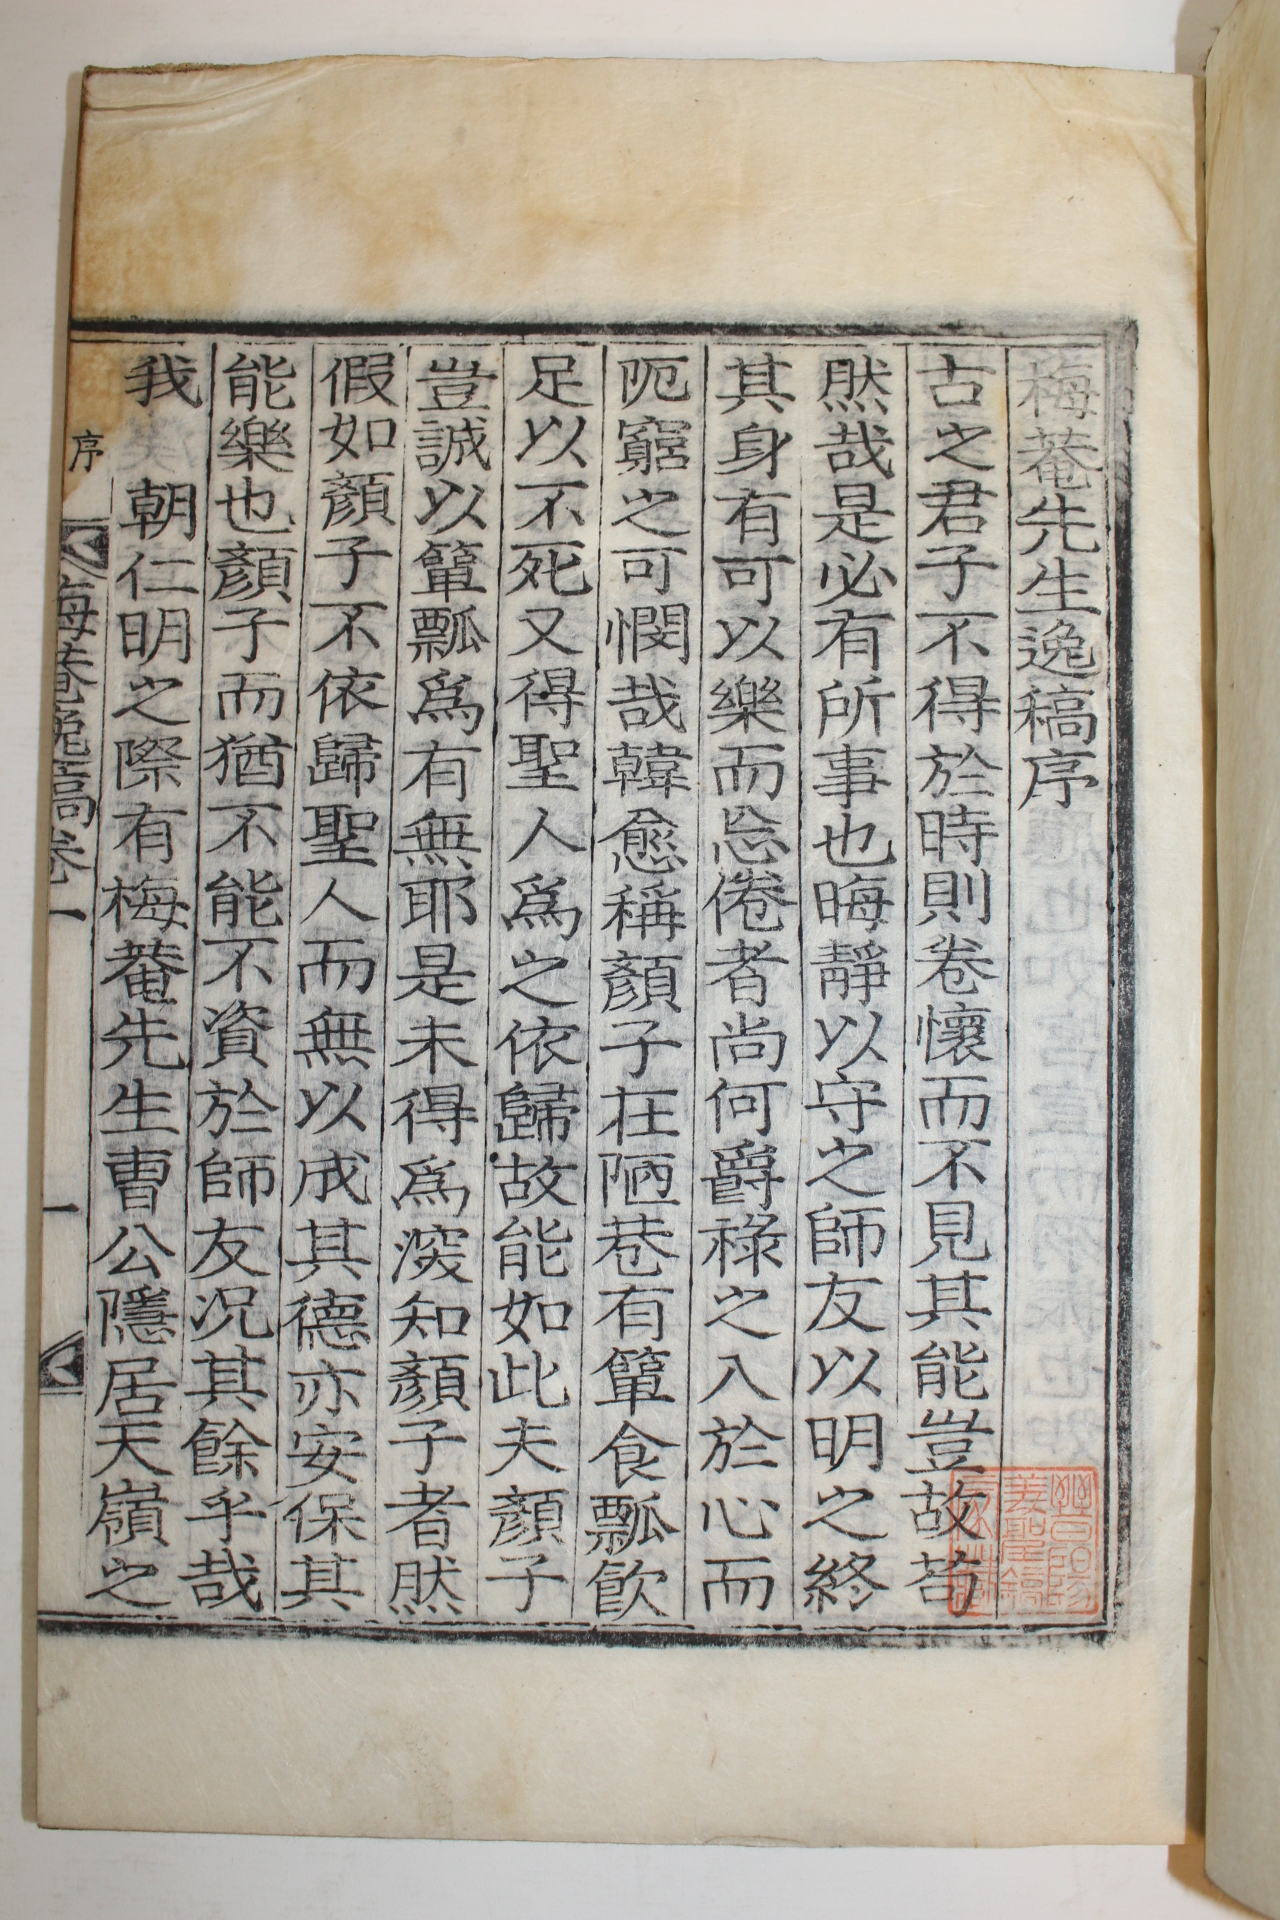 梅菴先生逸稿序
古之君子不得於時則卷懷而不見其能豈故苟
然哉是必有所事也晦靜以守之師友以明之終
其身有可以樂而忘倦者尚何爵祿之入於心而
阨窮之可憫哉韓愈稱顏子在陋巷有簞食瓢飮
足以不死又得聖人爲之依歸故能如此夫顏子
豈誠以簞瓢爲有無耶是未得爲深知顏子者然
假如顏子不依歸聖人而無以成其德亦安保其
能樂也顏子而猶不能不資於師友況其餘乎哉
我 朝仁明之際有梅菴先生曺公隱居天嶺之
序
梅菴逸稿卷一
一